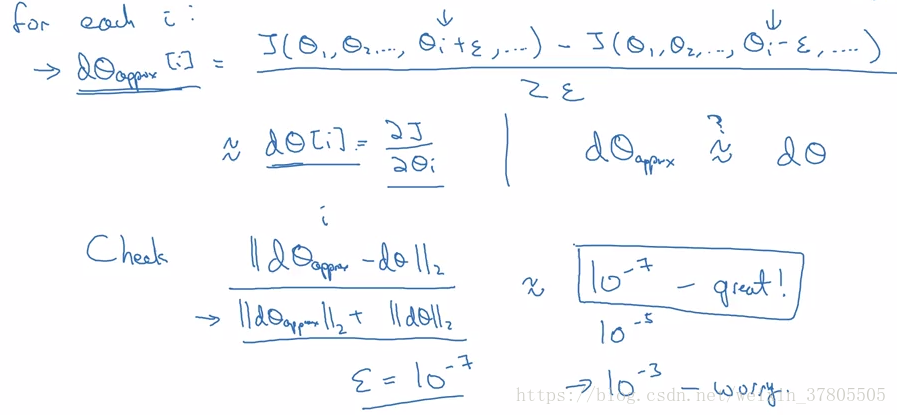 for each i:
→ dθapprox[i] = J(θ1, θ2, ..., θi+ε, ...) - J(θ1, θ2, ..., θi-ε, ....)
2ε
≈ dθ[i] = ∂J/∂θi | dθapprox ≈? dθ
i
Check ||dθapprox - dθ||2 ≈ 10^-7 - great!
→ ||dθapprox||2 + ||dθ||2 10^-5
ε = 10^-7 → 10^-3 - worry.
https://blog.csdn.net/weixin_37805505